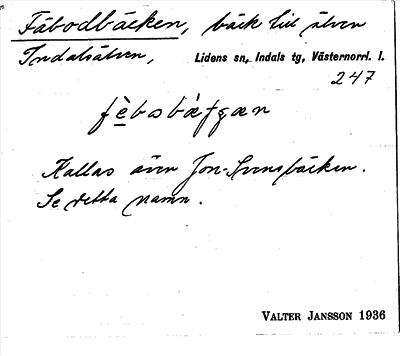 Fäbodbäcken, bäck till älven
Indalsälven, Lidens sn, Indals tg, Västernorrl. l.
247
fèbosbàtʃæn
Kallas även Jon-Svensbäcken.
Se detta namn.
VALTER JANSSON 1936